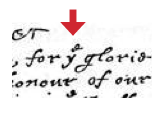 &T
, for yᵉ glorie-
onour of our